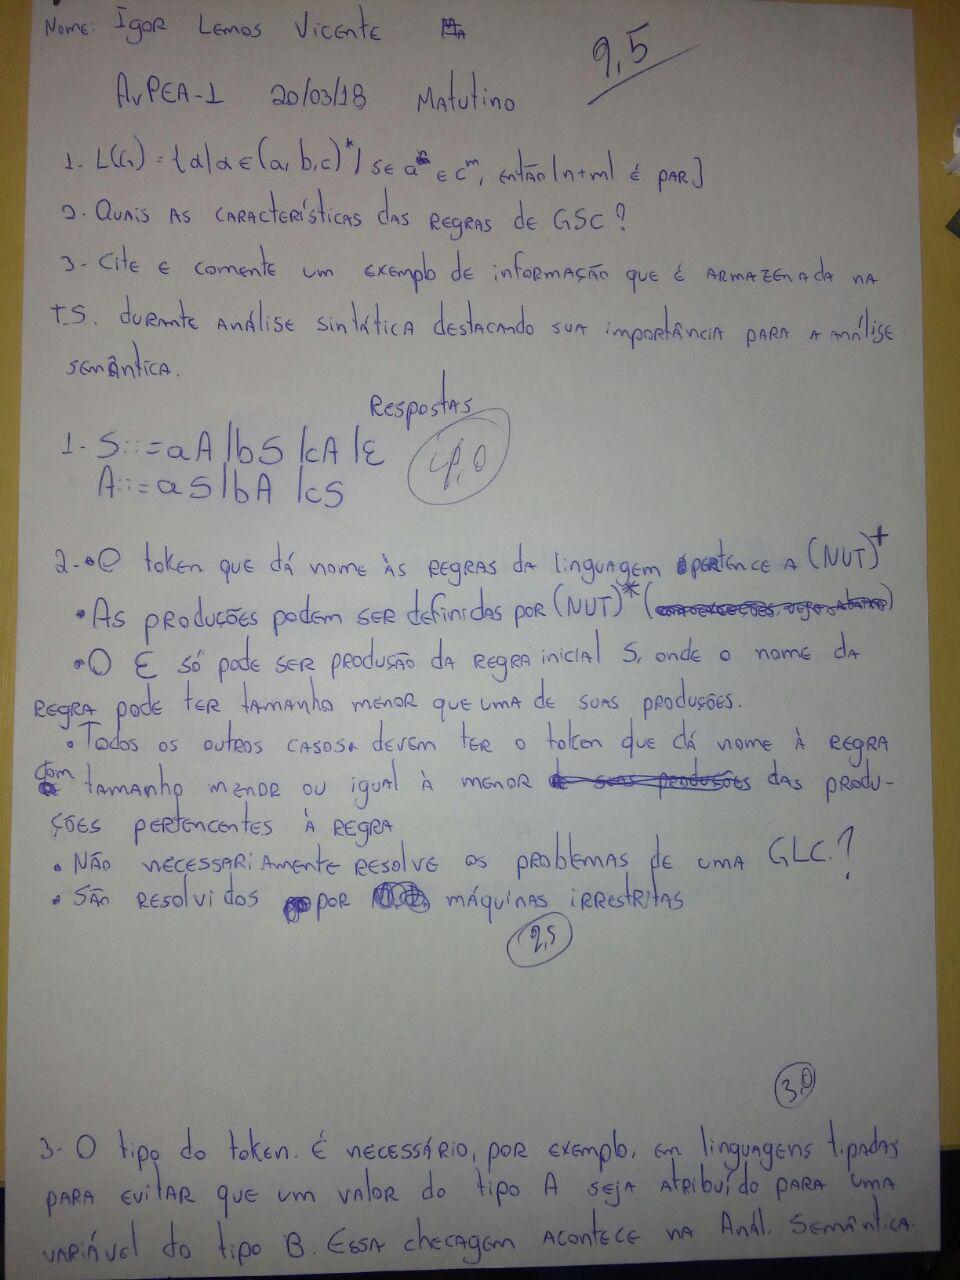 Nome: Igor Lemos Vicente
9,5
AvPEA-1 20/03/18 Matutino
1. L(G) = {α|α ∈ (a, b, c)* / se aⁿ e cᵐ, então |n+m| é par}
2. Quais as características das regras de GSC?
3- Cite e comente um exemplo de informação que é armazenada na
T.S. durante análise sintática destacando sua importância para a análise
semântica.
Respostas
1- S::=aA|bS|cA|ε
4,0
A::=aS|bA|cS
2-•O token que dá nome às regras da linguagem pertence a (NUT)⁺
•As produções podem ser definidas por (NUT)*
•O ε só pode ser produção da regra inicial S, onde o nome da
regra pode ter tamanho menor que uma de suas produções.
•Todos os outros casos devem ter o token que dá nome à regra
com tamanho menor ou igual à menor das produ-
ções pertencentes à regra
•Não necessariamente resolve os problemas de uma GLC.?
•São resolvidos por máquinas irrestritas
2,5
3,0
3- O tipo do token. É necessário, por exemplo, em linguagens tipadas
para evitar que um valor do tipo A seja atribuído para uma
variável do tipo B. Essa checagem acontece na Anál. Semântica.